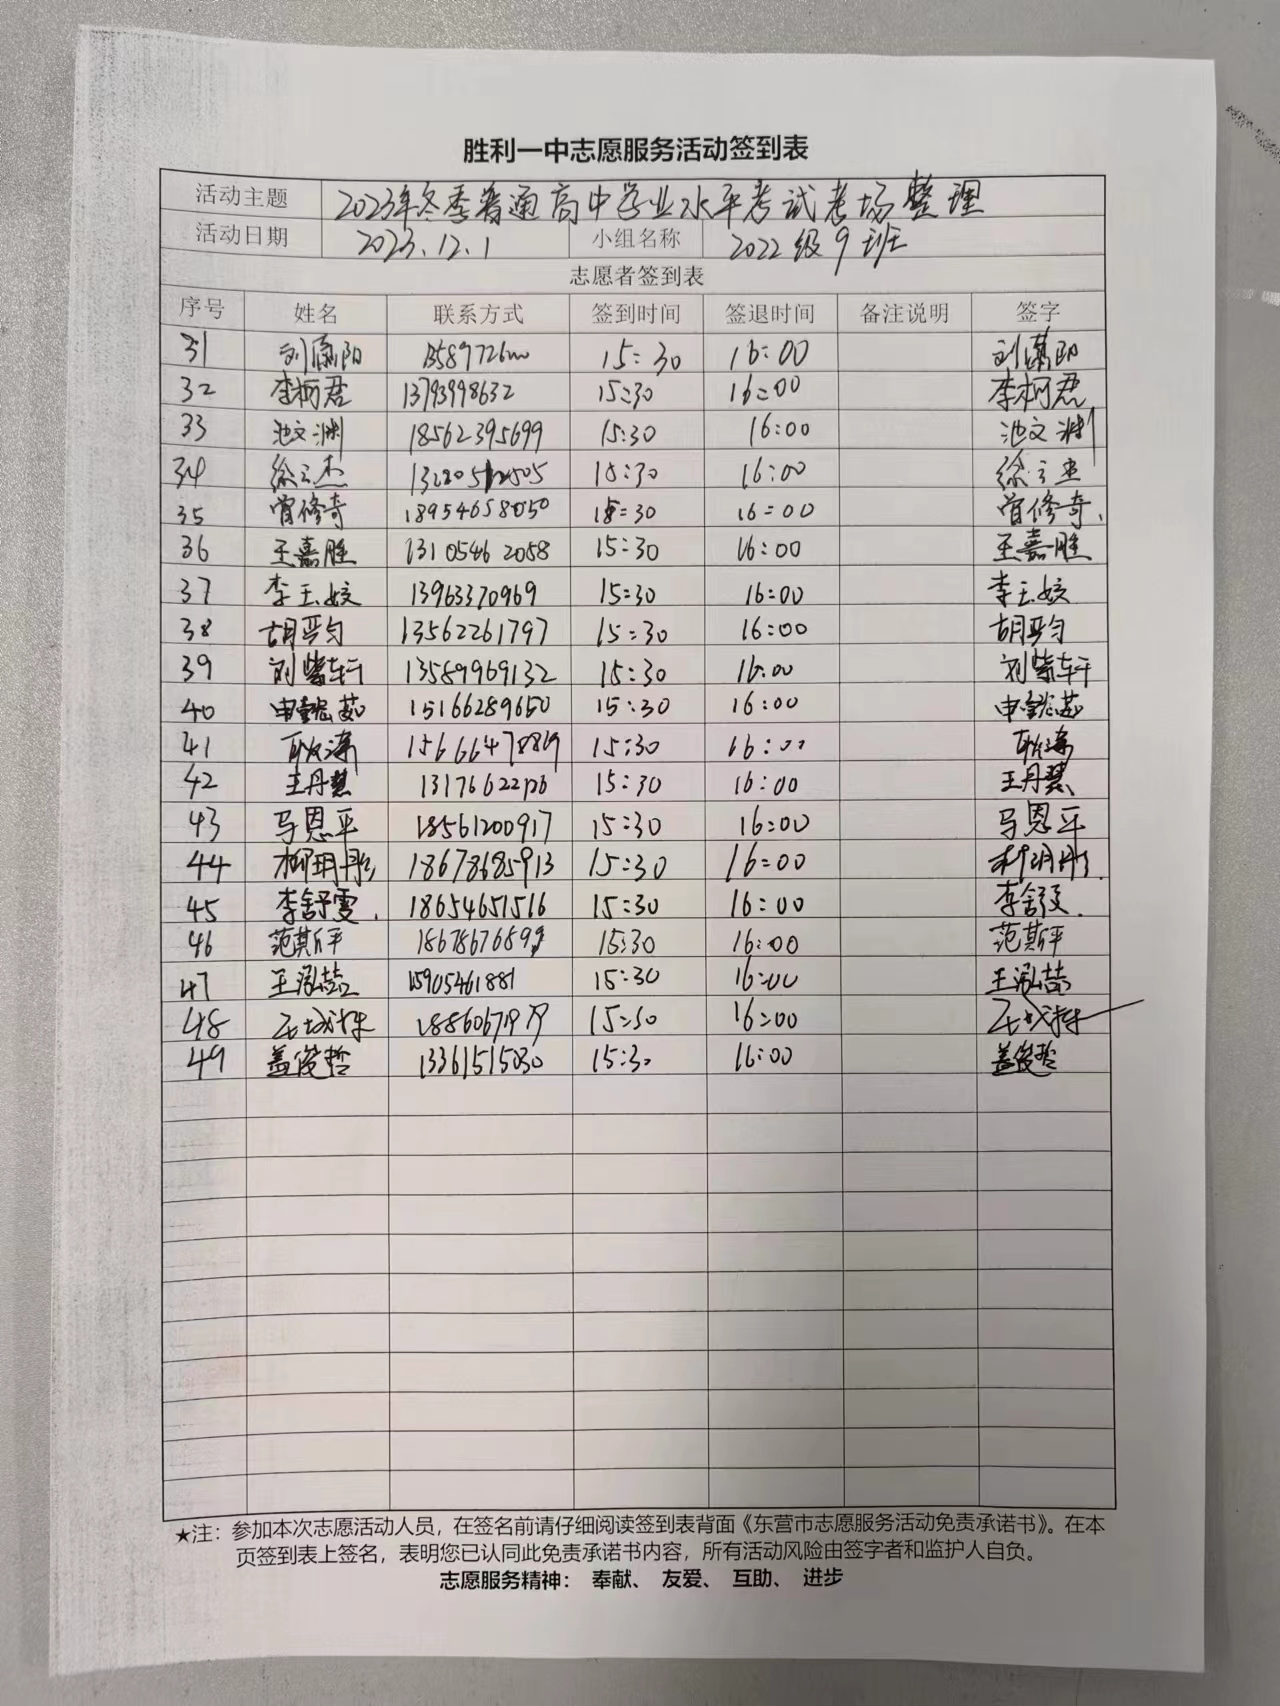 胜利一中志愿服务活动签到表
活动主题 2023年冬季普通高中学业水平考试考场整理
活动日期 2023.12.1 小组名称 2022级9班
志愿者签到表
序号 姓名 联系方式 签到时间 签退时间 备注说明 签字
31 刘潇阳 15:30 16:00 刘潇阳
32 李柯君 13793998632 15:30 16:00 李柯君
33 池文渊 18562395699 15:30 16:00 池文渊
34 徐立杰 15:30 16:00 徐立杰
35 曾修奇 18954658050 15:30 16:00 曾修奇.
36 王嘉胜 13105462058 15:30 16:00 王嘉胜
37 李玉姣 13963370969 15:30 16:00 李玉姣
38 胡芮匀 13562261797 15:30 16:00 胡芮匀
39 刘紫轩 13589969132 15:30 16:00 刘紫轩
40 申懿茹 15166289650 15:30 16:00 申懿茹
41 15666478869 15:30 16:00
42 王丹慧 15:30 16:00 王丹慧
43 马恩平 18561200917 15:30 16:00 马恩平
44 柳玥彤 18678685913 15:30 16:00 柳玥彤.
45 李舒雯. 18654651516 15:30 16:00 李舒雯.
46 范斯平 15:30 16:00 范斯平
47 王泓喆 15905461881 15:30 16:00 王泓喆
48 15:30 16:00
49 盖俊哲 13361515030 15:30 16:00 盖俊哲
★注：参加本次志愿活动人员，在签名前请仔细阅读签到表背面《东营市志愿服务活动免责承诺书》。在本
页签到表上签名，表明您已认同此免责承诺书内容，所有活动风险由签字者和监护人自负。
志愿服务精神： 奉献、 友爱、 互助、 进步